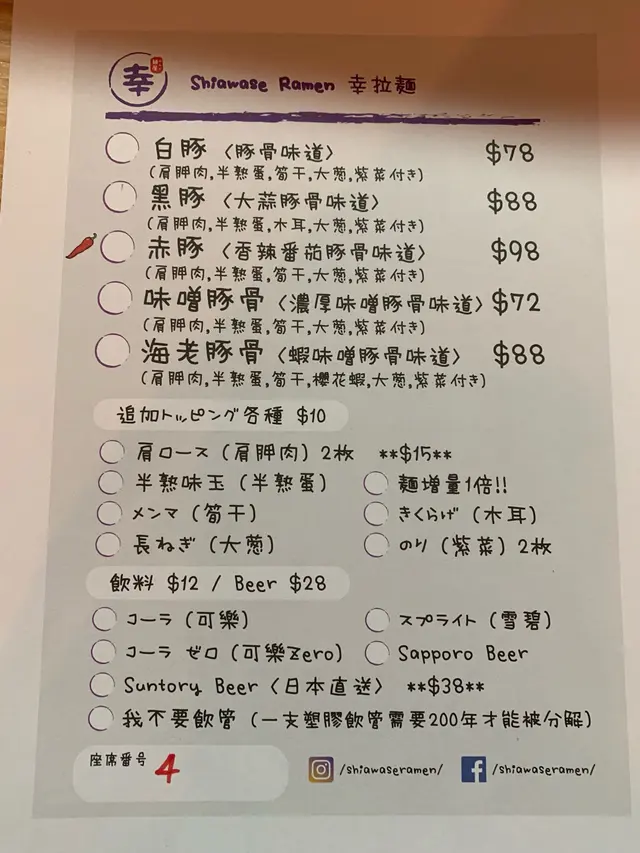 幸
Shiawase Ramen 幸拉麵
白豚〈豚骨味道〉 $78
(肩胛肉,半熟蛋,筍干,大葱,紫菜付き)
黑豚〈大蒜豚骨味道〉 $88
(肩胛肉,半熟蛋,木耳,大葱,紫菜付き)
赤豚〈香辣番茄豚骨味道〉 $98
(肩胛肉,半熟蛋,筍干,大葱,紫菜付き)
味噌豚骨〈濃厚味噌豚骨味道〉 $72
(肩胛肉,半熟蛋,筍干,大葱,紫菜付き)
海老豚骨〈蝦味噌豚骨味道〉 $88
(肩胛肉,半熟蛋,筍干,櫻花蝦,大葱,紫菜付き)
追加トッピング各種 $10
肩ロース (肩胛肉) 2枚 **$15**
半熟味玉 (半熟蛋) 麵增量1倍!!
メンマ (筍干) きくらげ (木耳)
長ねぎ (大葱) のり (紫菜) 2枚
飲料 $12 / Beer $28
コーラ (可樂) スプライト (雪碧)
コーラ ゼロ (可樂Zero) Sapporo Beer
Suntory Beer〈日本直送〉 **$38**
我不要飲管 (一支塑膠飲管需要200年才能被分解)
座席番号 4 /shiawaseramen/ /shiawaseramen/